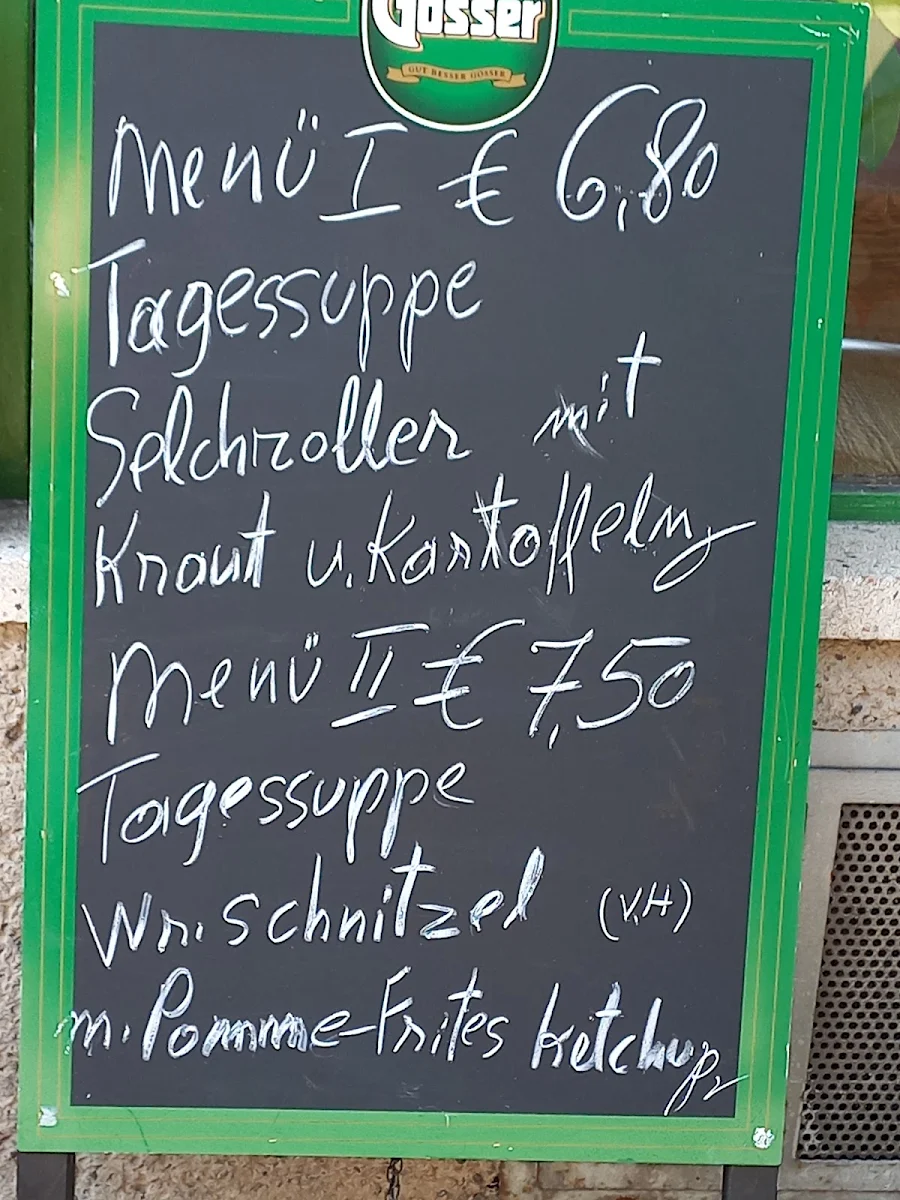 Gösser
GUT BESSER GÖSSER
Menü I € 6,80
Tagessuppe
Selchroller mit
Kraut u. Kartoffeln
Menü II € 7,50
Tagessuppe
Wr. Schnitzel (V,H)
m. Pomme-Frites Ketchup